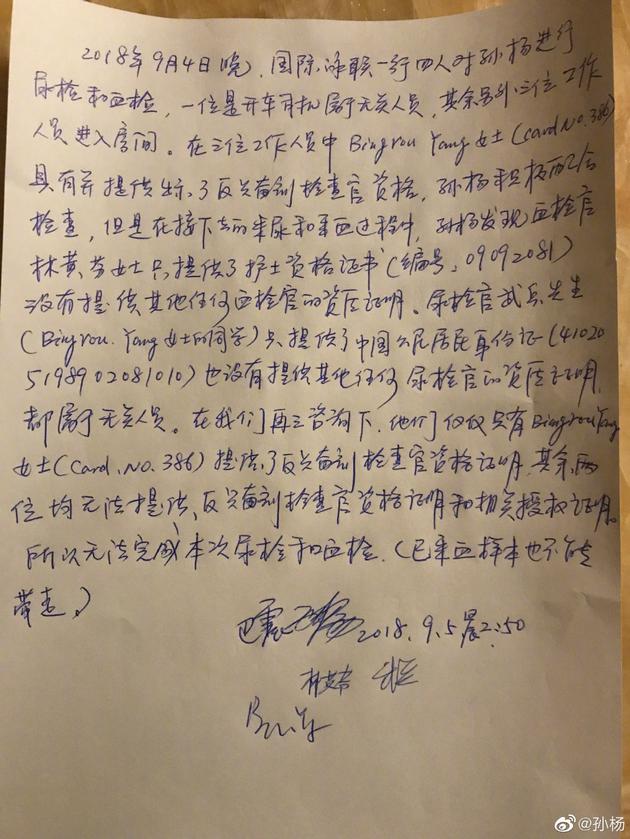 2018年9月4日晚,国际泳联一行四人对孙杨进行
尿检和血检,一位是开车司机属于无关人员,其余另外三位工作
人员进入房间。在三位工作人员中 Bingrou Yang女士(Card No.386)
具有并提供出示了反兴奋剂检查官资格,孙杨积极配合
检查,但是在接下去的采尿和采血过程中,孙杨发现血检官
女士只提供了护士资格证书(编号:09092081)
没有提供其他任何血检官的资质证明。尿检官 先生
(Bingrou.Yang女士的同学)只提供了中国公民居民身份证(41020
5198902081010)也没有提供其他任何尿检官的资质证明,
都属于无关人员。在我们再三咨询下,他们仅仅只有Bingrou Yang
女士(Card.No.386)提供了反兴奋剂检查官资格证明,其余两
位均无法提供反兴奋剂检查官资格证明和相关授权证明。
所以无法完成本次尿检和血检.(已采血样本也不能
带走.)
2018.9.5晨2:50
@孙杨